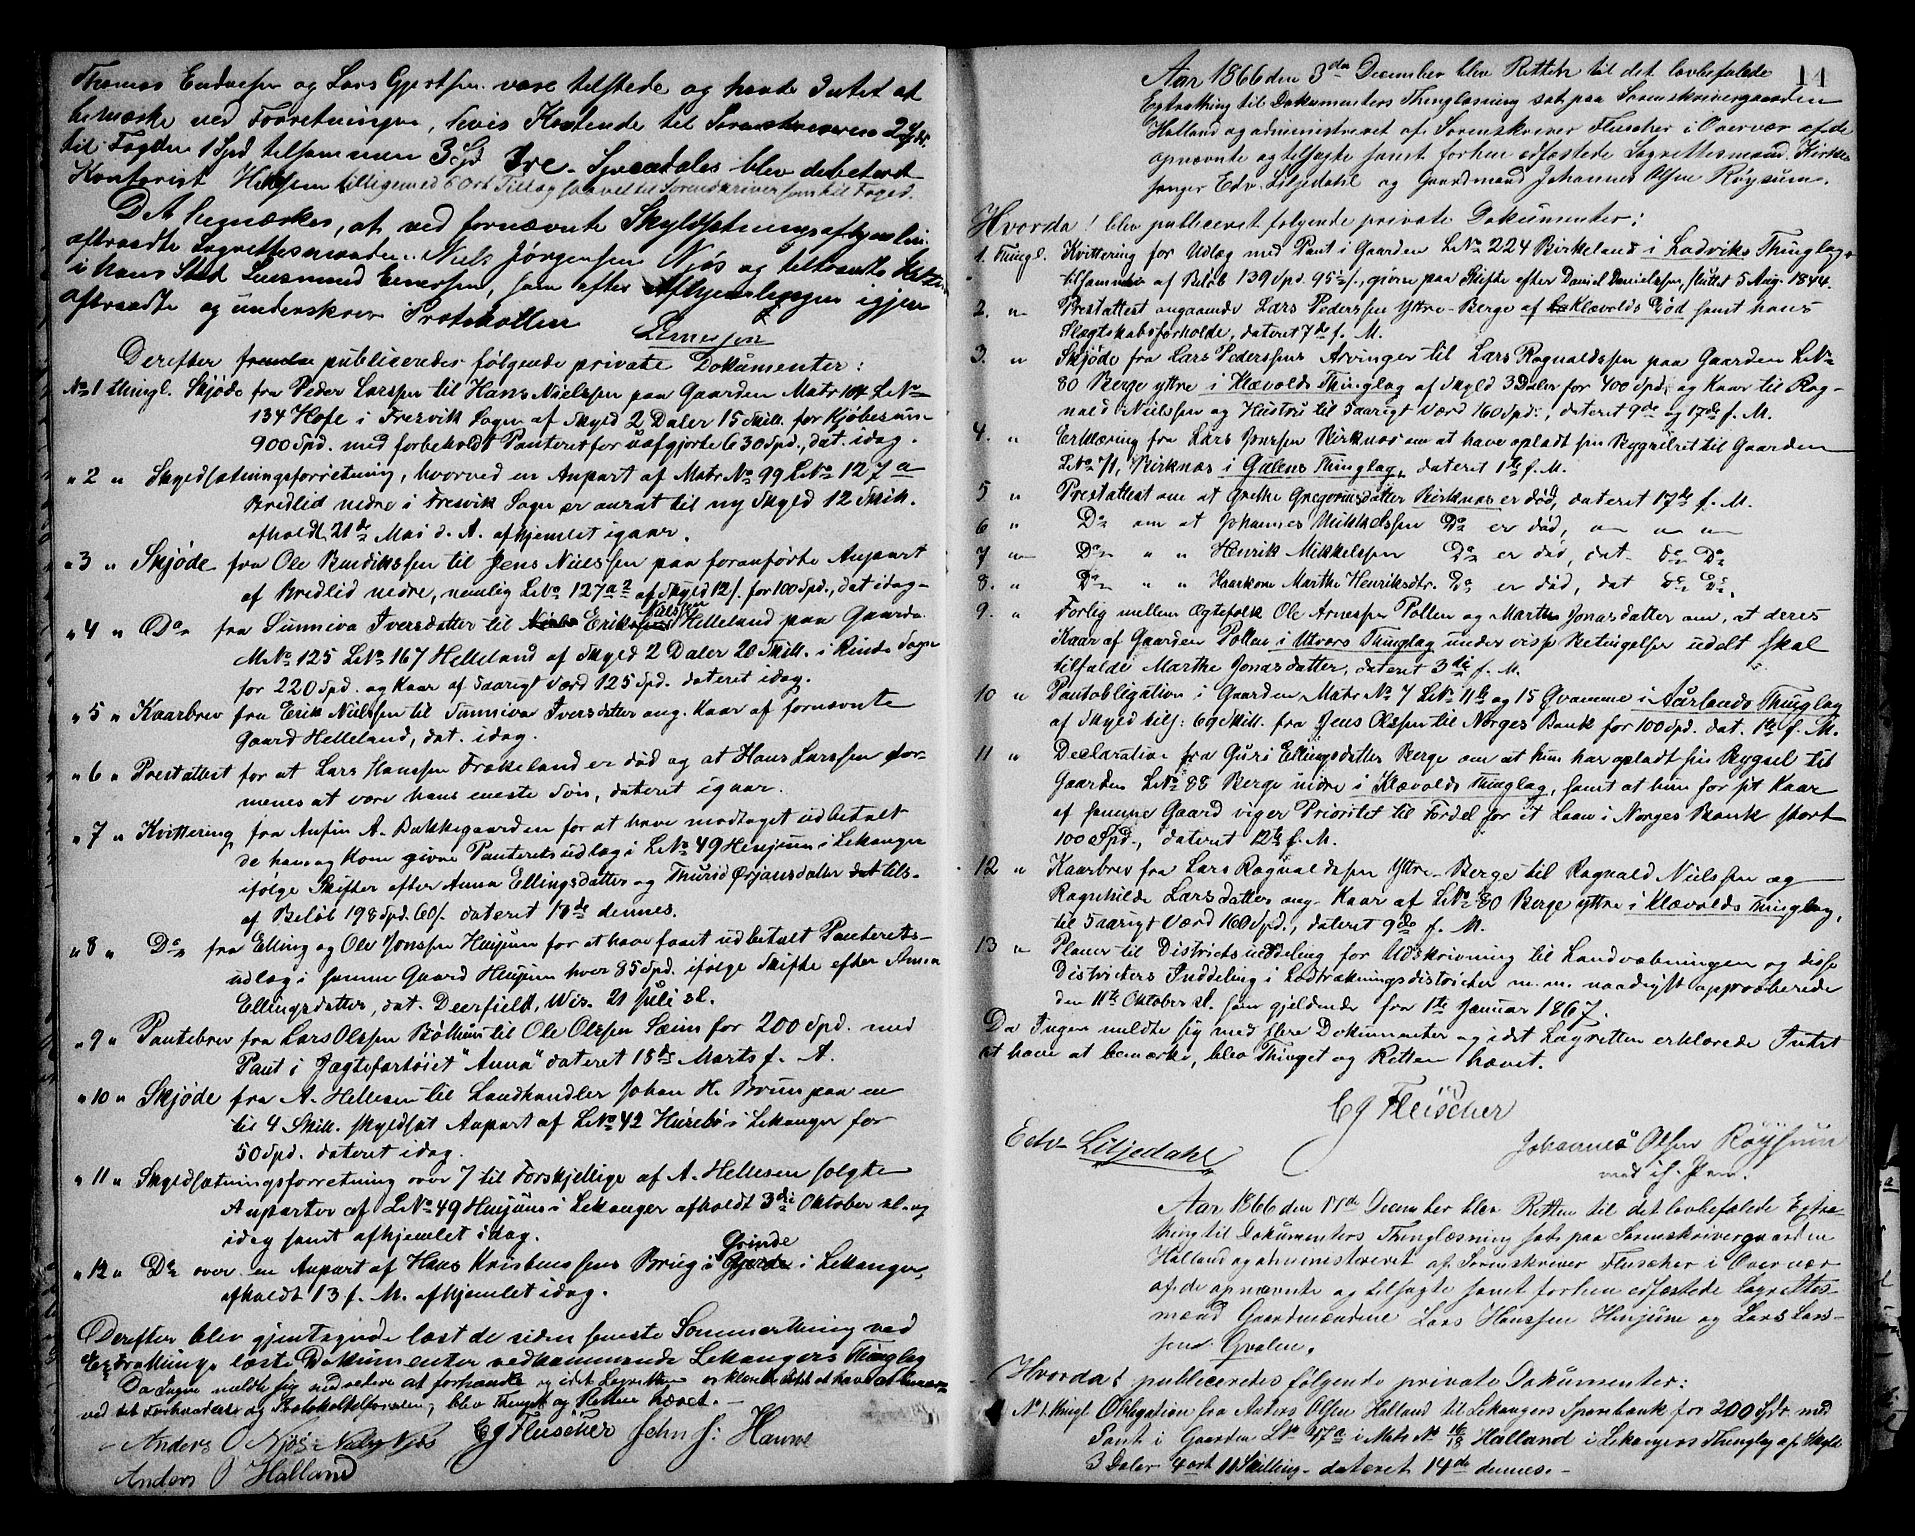 Thomas Endresen og Lars Gjertsen vare tilstede og havde Intet at
bemærke ved Forretningen, hvis Kostende til Sorenskriveren 2 Spd.
til Fogden 1 Spd tilsammen 3 Sp Tre Speciedaler blev debiteret
Kontorist tilligemed 8 Ort Tillæg saavel til Sorenskriver som til Foged.
Det bemærkes, at ved fornævnte Skyldsætnings afhjemling
aftraadte Lagrettesmanden Niels Jørgensen Njøs og tiltraadte Retten
i hans Sted Einersen, som efter Afhjemlingen igjen
aftraadte og underskrev Protokollen
Derefter publiceredes følgende private Dokumenter:
No 1 Thingl. Skjøde fra Peder Larssen til Hans Nielssen paa Gaarden Matr 104 LNo
134 Hofe i Fresvik Sogn af Skyld 2 Daler 15 Skill. for Kjøbesum
900 Spd. med forbeholdt Panteret for uafgjorte 630 Spd., dat. idag.
" 2 " Skyldsætningsforretning, hvorved en Anpart af Matr No 99 LNo 127a
Bredlid nedre i Fresvik Sogn er ansat til ny Skyld 12 Skill.
afholdt 21de Mai d. A. afhjemlet igaar.
" 3 " Skjøde fra Ole Bendikssen til Jens Nielssen paa foranførte Anpart
af Bredlid nedre, nemlig LNo 127 a 2 af Skyld 12 f. for 100 Spd., dat idag
" 4 " Do fra Sunniva Iversdatter til Erik Nielssen Helleland paa Gaarden
MNo 125 LNo 167 Helleland af Skyld 2 Daler 20 Skill. i Rinde Sogn
for 220 Spd. og Kaar af 5aarigt Værd 125 Spd. dateret idag.
" 5 " Kaarbrev fra Erik Nielssen til Sunniva Iversdatter ang. Kaar af fornævnte
Gaard Helleland, dat. idag.
" 6 " Prestattest for at Lars Hanssen Frøkeland er død og at Hans Larssen for-
menes at være hans eneste Søn, dateret igaar.
" 7 " Kvittering fra Anfin A. Bakkegaarden for at have modtaget udbetalt
de ham og Kone givne Panteretsudlæg i LNo 49 Henjum i Lekanger
ifølge Skifter efter Anna Ellingsdatter og Thurid Ørjansdatter tils.
af Beløb 198 Spd. 60 f. dateret 10de dennes.
" 8 " Do fra Elling og Ole Jonssen Henjum for at have faaet udbetalt Panterets-
udlæg i samme Gaard Henjum hver 85 Spd. ifølge Skifte efter Anna
Ellingsdatter, dat. Deerfield, Wis. 21 Juli sl.
" 9 " Pantebrev fra Lars Olssen Bøthun til Ole Olssen Sæim for 200 Spd. med
Pant i Jægtefartøiet "Anna" dateret 18de Marts f. A.
" 10 " Skjøde fra A. Hellesen til Landhandler Johan H. Brun paa en
til 4 Skill. skyldsat Anpart af LNo 42 Husebø i Lekanger for
50 Spd. dateret idag.
" 11 " Skyldsætningsforretning over 7 til Forskjellige af A. Hellesen solgte
Anparter af LNo 49 Henjum i Lekanger afholdt 3die Oktober sl. og
idag samt afhjemlet idag.
" 12 " Do over en Anpart af Hans Kristenssens Brug i Grinde i Lekanger,
afholdt 13 f. M. afhjemlet idag.
Derefter blev gjentagende læst de siden seneste Sommerthing ved
Extrathing læste Dokumenter vedkommende Lekangers Thinglag
Da Ingen meldte sig med videre at forhandle og idet Lagretten erklærede Intet at have at bemærke
ved det Forhandlede og Protokoltilførslen, blev Thinget og Retten hævet.
Anders O Njøs CG Fleischer John J. Hamre
Anders O Halland
14
Aar 1866 den 3die December blev Retten til det lovbefalede
Extrathing til Dokumenters Thinglæsning sat paa Sorenskrivergaarden
Halland og administreret af Sorenskriver Fleischer i Overvær af de
opnævnte og tilsagte samt forhen edfæstede Lagrettesmænd Kirke-
sanger Edv. Liljedahl og Gaardmand Johannes Olsen Røysum.
Hvorda! blev publiceret følgende private Dokumenter:
1. Thingl. Kvittering for Udlæg med Pant i Gaarden LNo 224 Birkeland i Ladviks Thinglag
tilsammen af Beløb 139 Spd. 95½ f., givne paa Skifte efter Daniel Danielssen, sluttet 5 Aug. 1844.
2. " Prestattest angaaende Lars Pederssen Yttre-Berge af Klævolds Død samt hans
Slægtskabsforholde, dateret 7de f. M.
3. " Skjøde fra Lars Pederssens Arvinger til Lars Ragnaldssen paa Gaarden LNo
80 Berge yttre i Klævolds Thinglag af Skyld 3 Daler for 400 Spd, og Kaar til Rag-
nald Nielssen og Hustru til 5aarigt Værd 160 Spd:, dateret 9de og 17de f. M.
4. " Erklæring fra Lars Jonssen Birknæs om at have opladt sin Bygselret til Gaarden
LNo 71, Birknæs i Gulens Thinglag, dateret 1ste f. M.
5 " Prestattest om at Grethe Gregoriusdatter Birknæs er død, dateret 17de f. M.
6 " Do om at Johannes Mikkelssen Do er død, " " "
7 " Do " " Henrik Mikkelssen Do er død, dat. do Do
8. " Do " " Kaarkone Marthe Henriksdtr. Do er død, dat do Do.
9. " Forlig mellem Ægtefolk Ole Arnessen Pollen og Marthe Jonasdatter om, at deres
Kaar af Gaarden Pollen i Utværs Thinglag under visse Betingelser udelt skal
tilfalde Marthe Jonasdatter, dateret 3die f. M.
10 " Pantobligation i Gaarden Matr No 7 LNo 11b og 15 Qvamme i Aarlands Thinglag
af Skyld tils: 69 Skill. fra Jens Olssen til Norges Bank for 100 Spd. dat. 1ste f. M.
11 " Declaration fra Guri Ellingsdatter Berge om at hun har opladt sin Bygsel til
Gaarden LNo 88 Berge nidre i Klævolds Thinglag, samt at hun for sit Kaar
af samme Gaard viger Prioritet til Fordel for et Laan i Norges Bank stort
100 Spd., dateret 12te f. M.
12 " Kaarbrev fra Lars Ragnaldssen Yttre-Berge til Ragnald Nielssen og
Ragnhilde Larsdatter ang. Kaar af LNo 80 Berge yttre i Klævolds Thinglag,
til 5aarigt Værd 160 Spd., dateret 9de f. M.
13 " Planer til Districtsinddeling for Udskrivning til Landværbningen og disse
Districters Inddeling i Lodtrækningsdistricter m. m. naadigst approberede
den 11te Oktober sl. som gjeldende fra 1ste Januar 1867.
Da Ingen meldte sig med flere Dokumenter og idet Lagretten erklærede Intet
at have at bemærke, blev Thinget og Retten hævet.
CG Fleischer
Edv. Liljedahl Johannes Olsen Røysum
med i. Pen.
Aar 1866 den 17de December blev Retten til det lovbefalede Extra-
thing til Dokumenters Thinglæsning sat paa Sorenskrivergaarden
Halland og administreret af Sorenskriver Fleischer i Overvær
af de opnævnte og tilsagte samt forhen edfæstede Lagrettes-
mænd Gaardmændene Lars Hanssen Henjum og Lars Lars-
sen Qvalen.
Hvorda! publiceredes følgende private Dokumenter:
No 1. Thingl. Obligation fra Anders Olsen Halland til Lekangers Sparebank for 200 Spdr. med
Pant i Gaarden LNo 47a i Matr No 16/18 Halland i Lekangers Thinglag af Skyld
3 Daler 4 ort 11 Skilling. dateret 14de dennes.